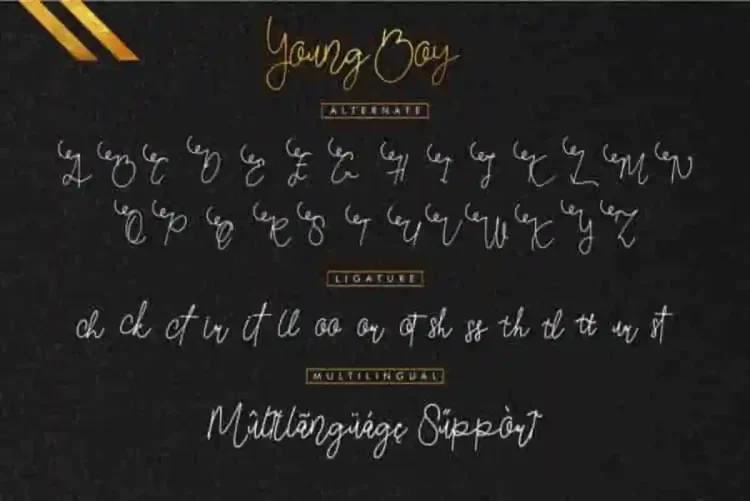 Young Boy
ALTERNATE
A B C D E F G H I J K L M N
O P Q R S T U V W X Y Z
LIGATURE
ch ck ct ir it ll oo or ot sh ss th tl tt ur st
MULTILINGUAL
Mûltîlãngüágę Sűppòrt